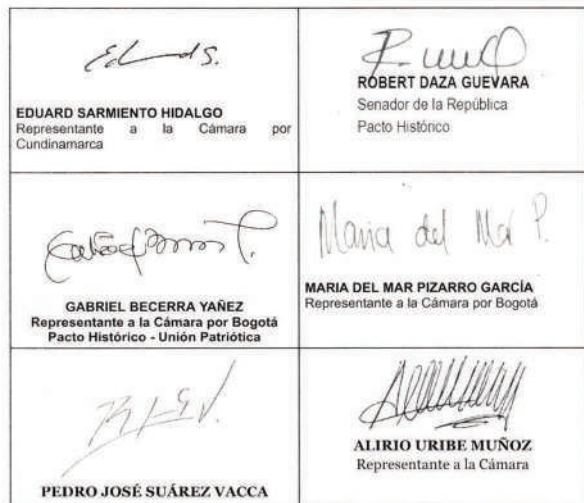 Eduard S.
EDUARD SARMIENTO HIDALGO
Representante a la Cámara por
Cundinamarca
ROBERT DAZA GUEVARA
Senador de la República
Pacto Histórico
GABRIEL BECERRA YAÑEZ
Representante a la Cámara por Bogotá
Pacto Histórico - Unión Patriótica
Maria del Mar P.
MARIA DEL MAR PIZARRO GARCÍA
Representante a la Cámara por Bogotá
PEDRO JOSÉ SUÁREZ VACCA
ALIRIO URIBE MUÑOZ
Representante a la Cámara